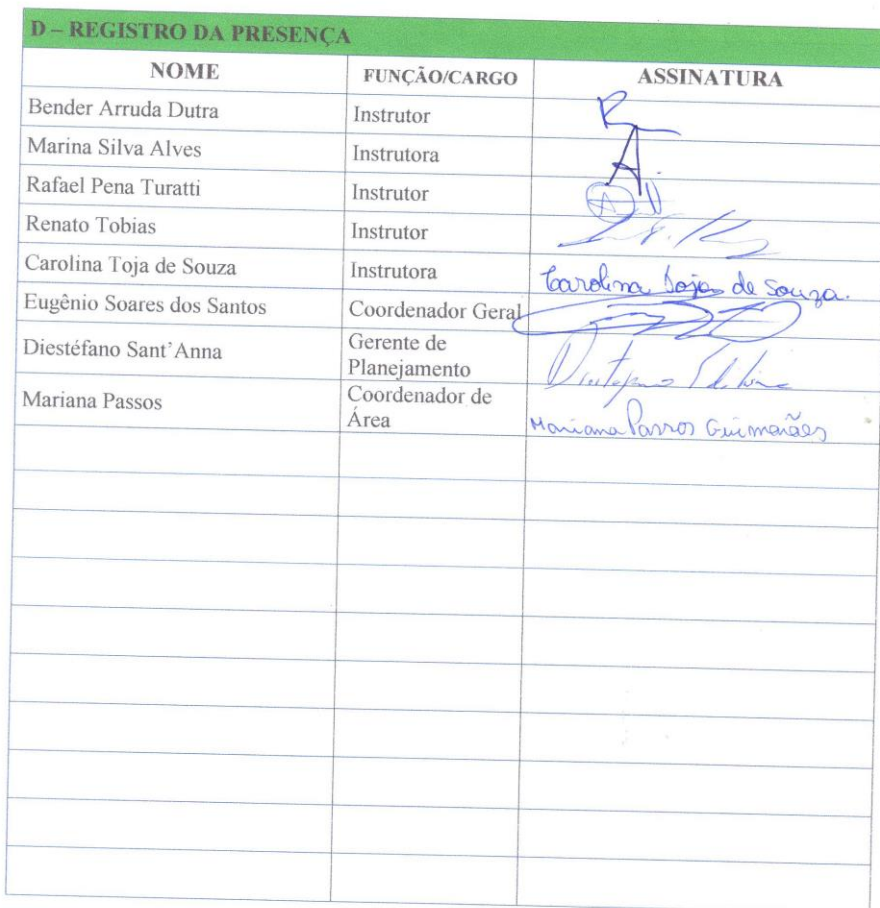 D – REGISTRO DA PRESENÇA
NOME FUNÇÃO/CARGO ASSINATURA
Bender Arruda Dutra Instrutor
Marina Silva Alves Instrutora
Rafael Pena Turatti Instrutor
Renato Tobias Instrutor
Carolina Toja de Souza Instrutora Carolina Toja de Souza.
Eugênio Soares dos Santos Coordenador Geral
Diestéfano Sant'Anna Gerente de
Planejamento
Mariana Passos Coordenador de
Área Mariana Passos Guimarães